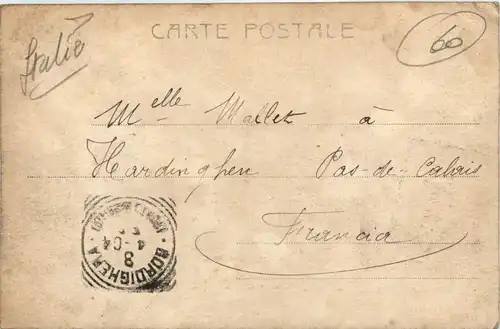 Italie
CARTE POSTALE
60
Melle Mallet à
Hardinghen Pas-de-Calais
Francia
BORDIGHERA
3
4-04